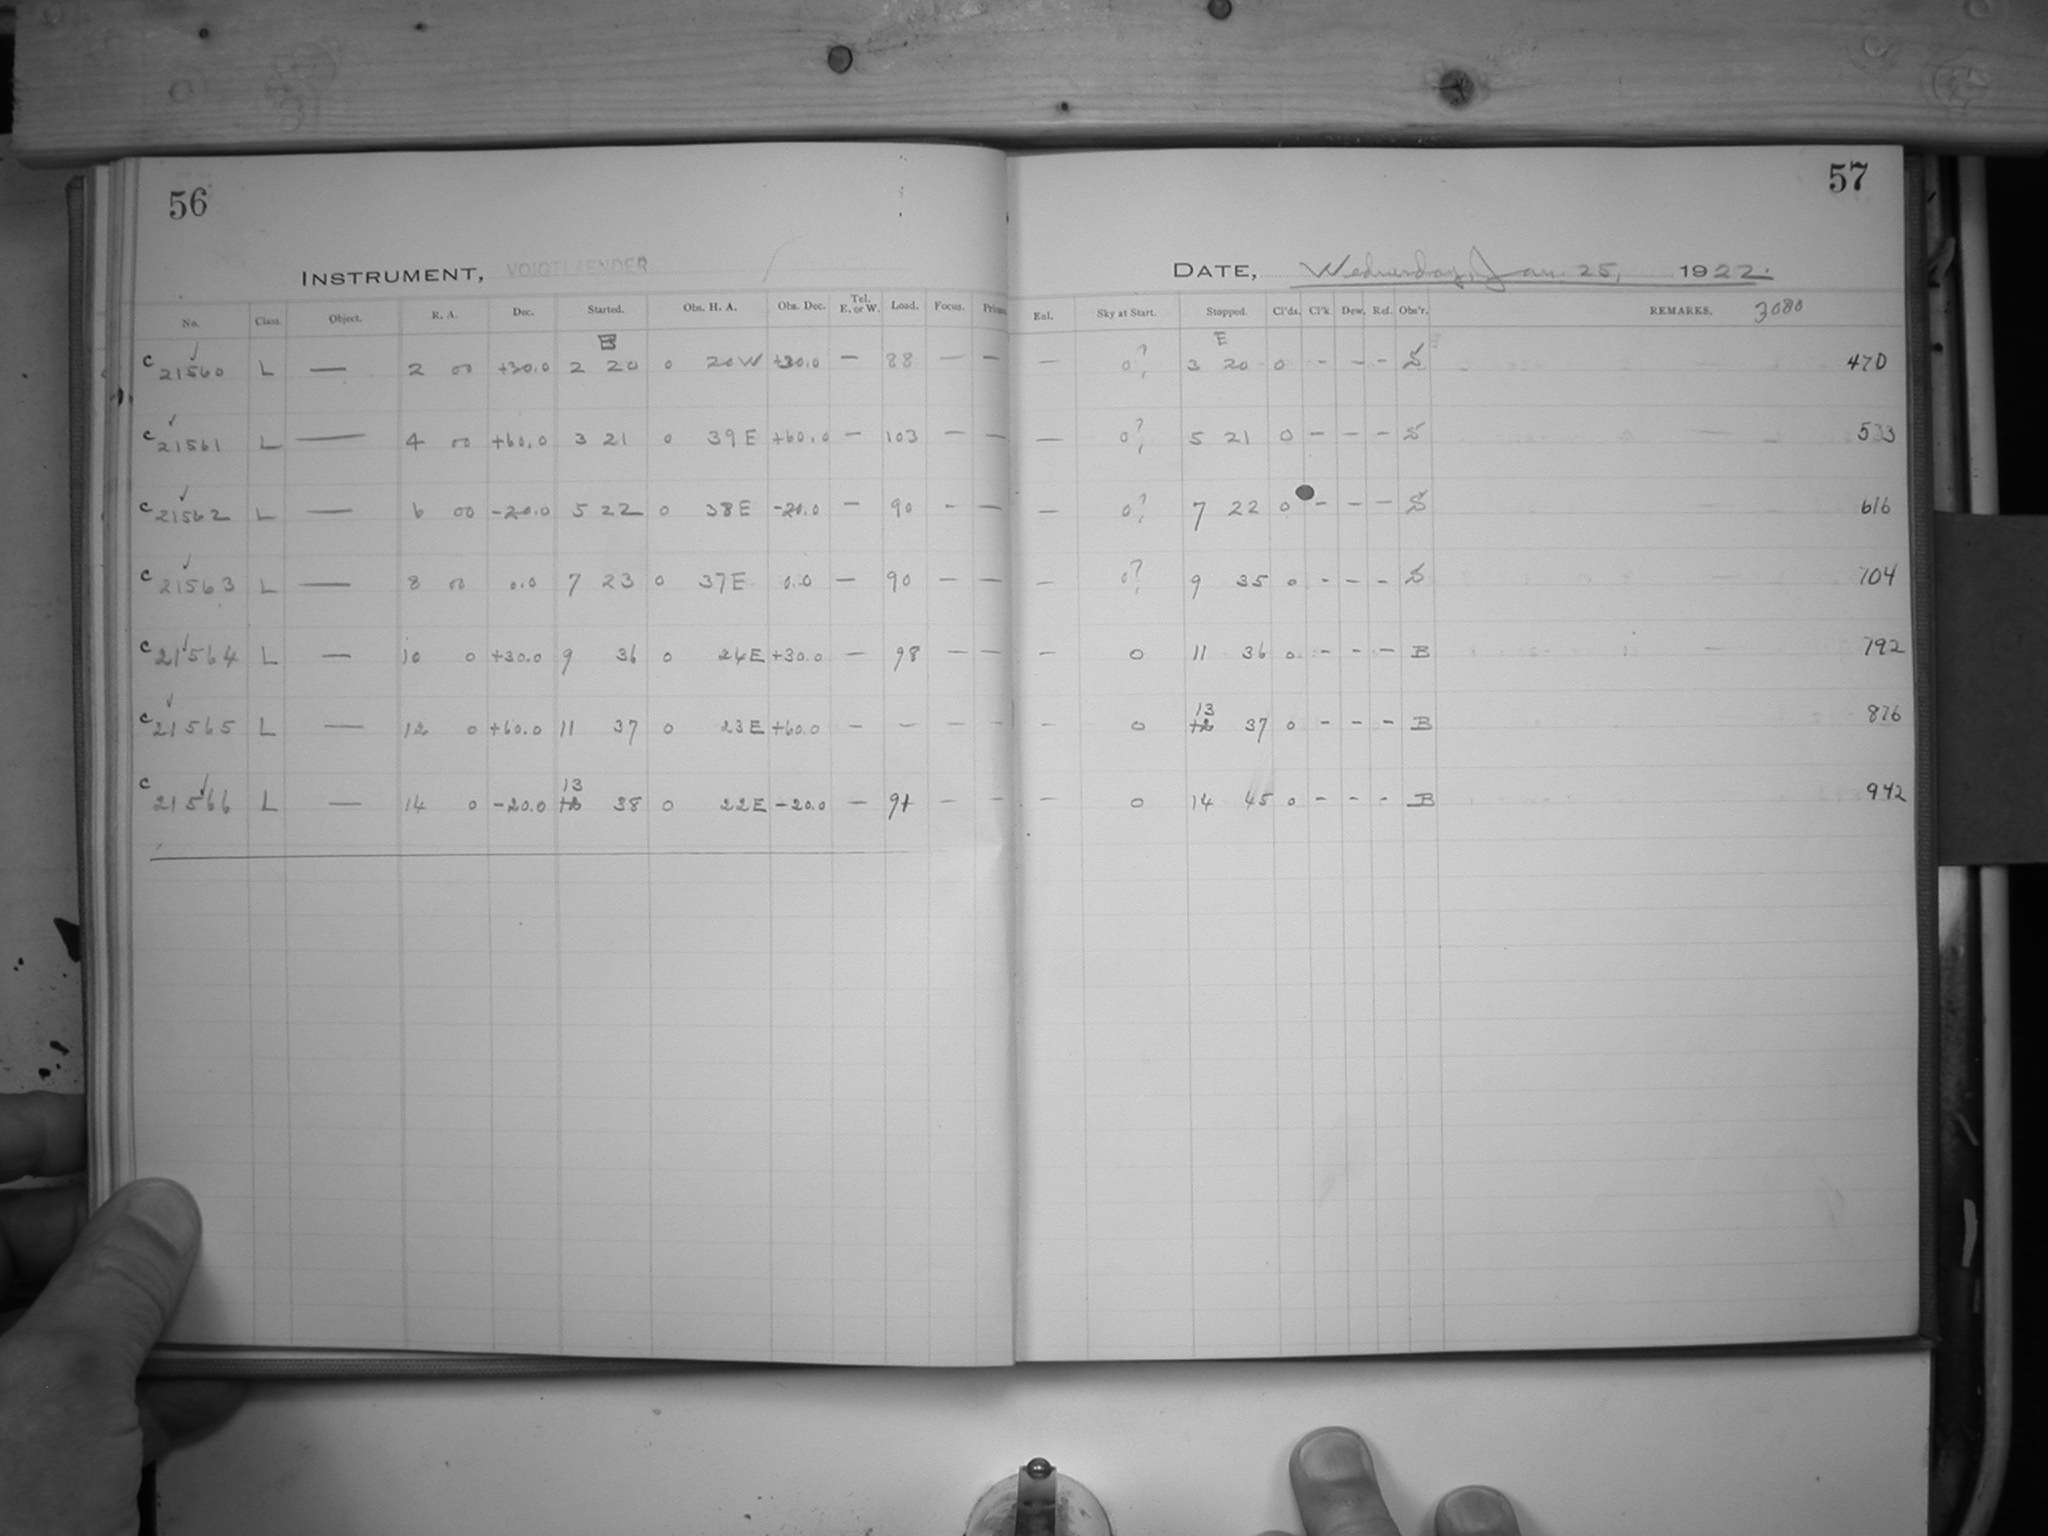 56
57
INSTRUMENT, VOIGTLAENDER
DATE, Wednesday, Jan. 25, 1922.
No. Class. Object. R. A. Dec. Started. Obs. H. A. Obs. Dec. Tel. E. or W. Load. Focus. Prism Eul. Sky at Start. Stopped. Cl'ds. Cl'k Dew. Ref. Obs'r. REMARKS. 3080
E E
c 21560 L — 2 00 +30.0 2 20 0 20W +30.0 — 88 — — — 0? 3 20 0 - - - S 470
c 21561 L — 4 00 +60.0 3 21 0 39E +60.0 — 103 — — — 0? 5 21 0 - - - S 533
c 21562 L — 6 00 -20.0 5 22 0 38E -20.0 — 90 - — — 0? 7 22 0 - - - S 616
c 21563 L — 8 00 0.0 7 23 0 37E 0.0 — 90 — — — 0? 9 35 0 - - - S 704
c 21564 L — 10 0 +30.0 9 36 0 24E +30.0 — 98 — — — 0 11 36 0 - - - B 792
13
c 21565 L — 12 0 +60.0 11 37 0 23E +60.0 — - - - - 0 12 37 0 - - - B 876
13
c 21566 L — 14 0 -20.0 12 38 0 22E -20.0 — 91 - - — 0 14 45 0 - - - B 942